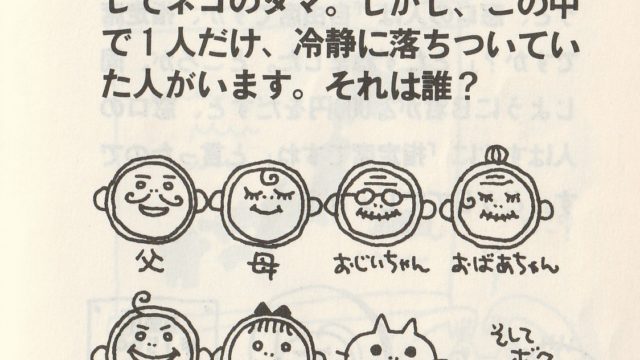 してネコのタマ。しかし、この中
で１人だけ、冷静に落ちついてい
た人がいます。それは誰？
父 母 おじいちゃん おばあちゃん
そして
ボ